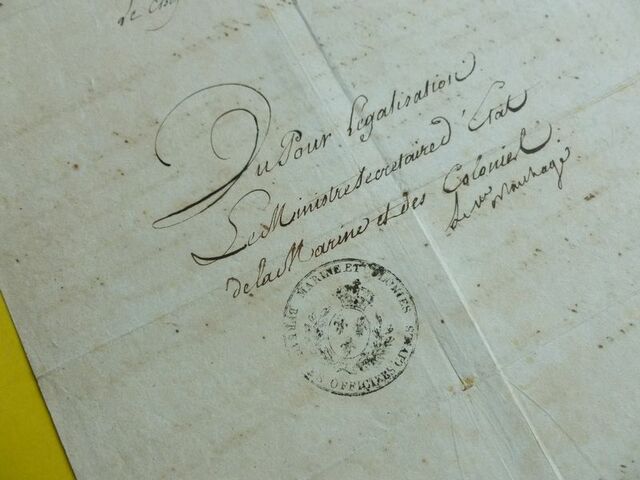 Le
Vu Pour Légalisation
Le Ministre Secretaire d'Etat
de la Marine et des Colonies
MARINE ET COLONIES
OFFICIERS